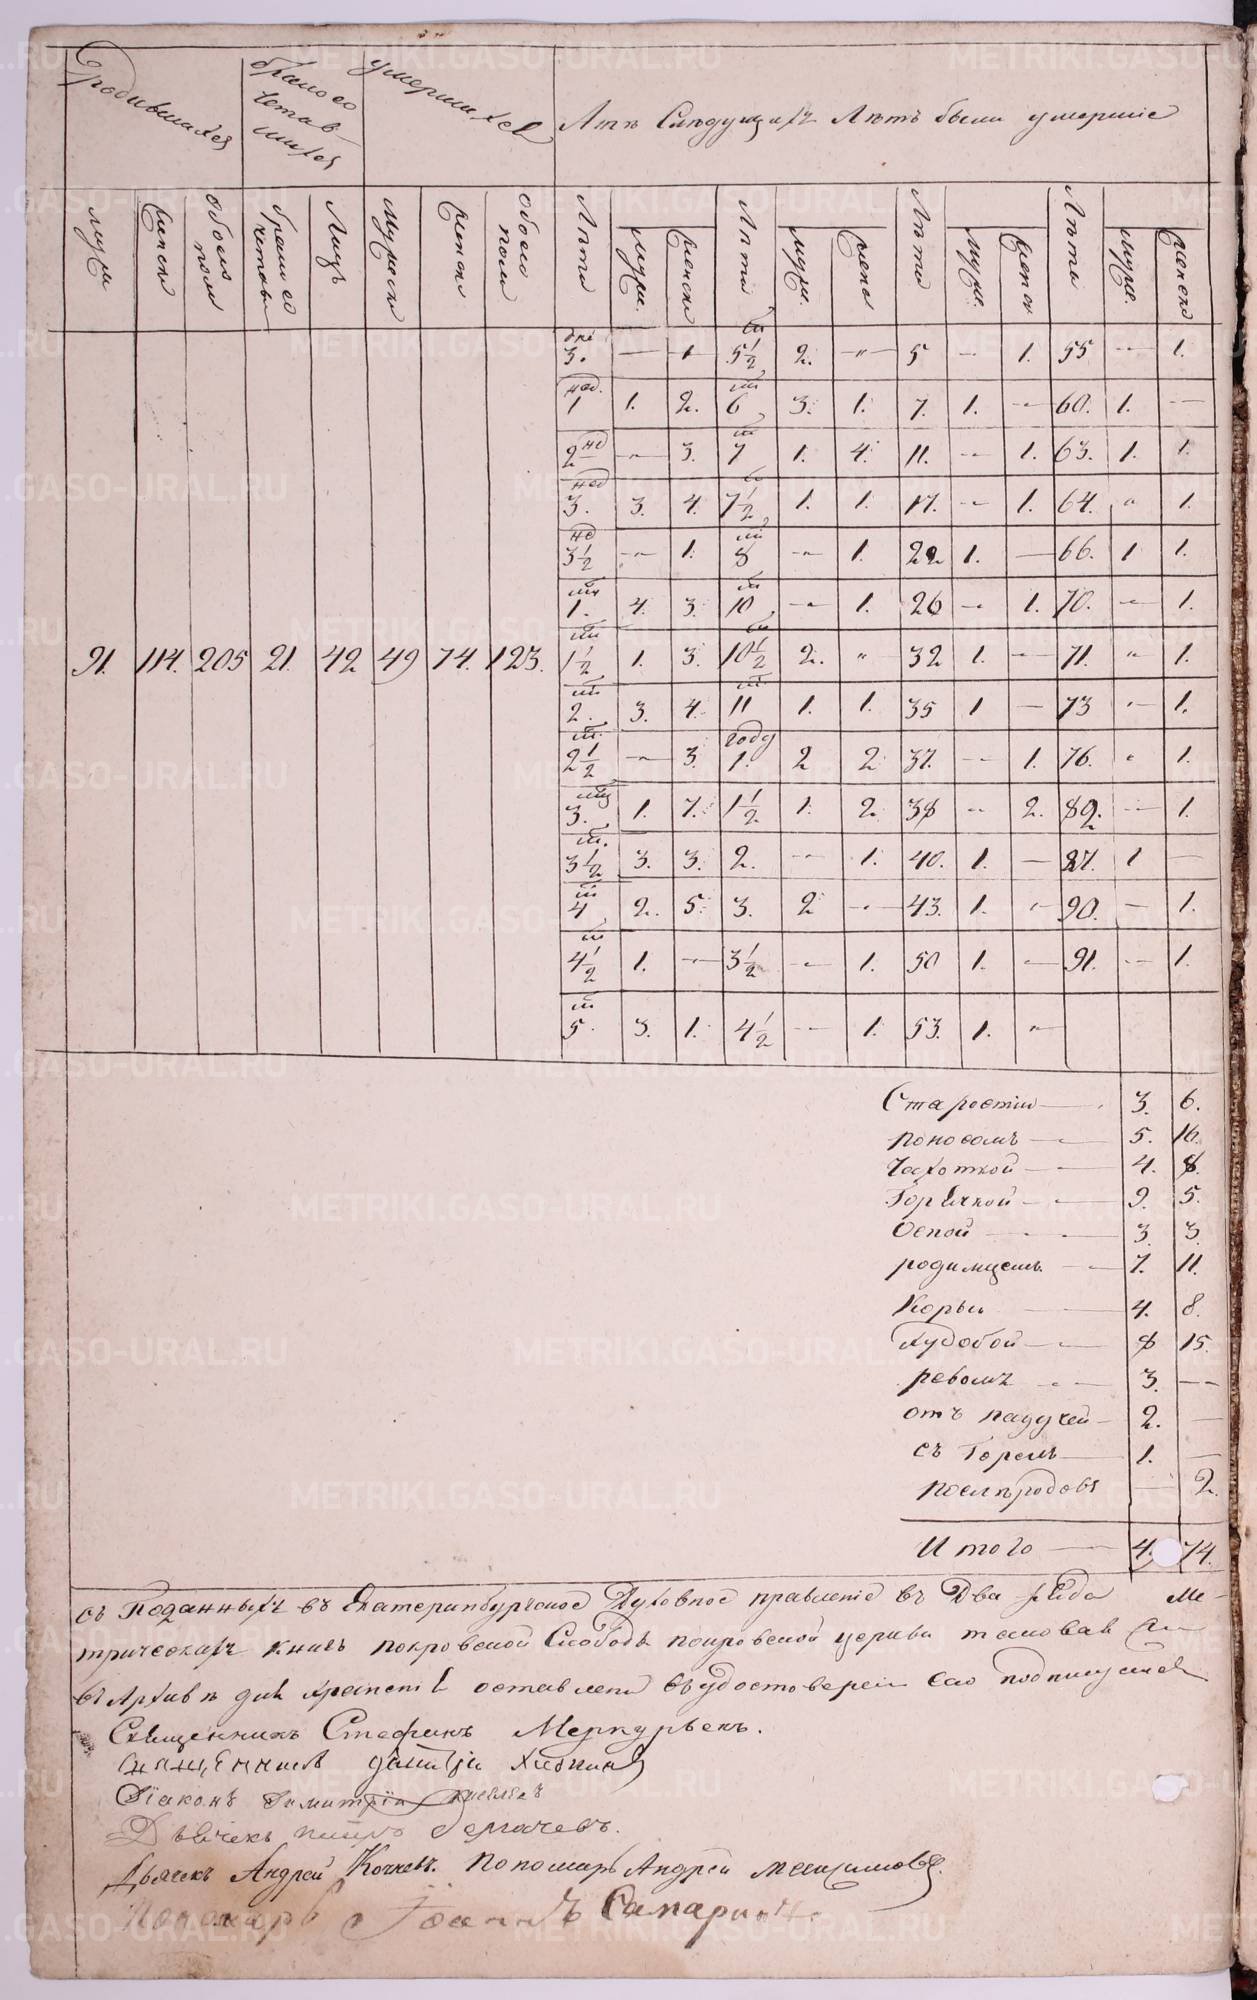 родившихся
бракосо
четав
шихся
умершихся
Лѣтъ Слѣдующихъ Лѣтъ были умершіе
муж женск обоего пола лицъ мужеск женск обоего пола Лѣта муж. женск Лѣта муж. женс Лѣта муж. женск Лѣты муж. женско
3. — 1 5½ 2. " 5 — 1. 55 — 1.
нед. 1 1. 2. 6 3. 1. 7. 1. — 60. 1. —
2 не — 3. 7 1. 4. 11. — 1. 63. 1. 1.
нед 3. 3. 4. 7½ 1. 1. 17. — 1. 64. " 1.
не 3½ — 1. 8 — 1. 22 1. — 66. 1 1.
1. 4. 3. 10 — 1. 26 — 1. 70. — 1.
91. 114. 205 21. 42 49 74. 123. 1½ 1. 3. 10½ 2. " 32 1. — 71. " 1.
2. 3. 4. 11 1. 1. 35 1 — 73 — 1.
2½ — 3. году 1. 2 2 37. — 1. 76. " 1.
3. 1. 7. 1½ 1. 2. 38 — 2. 82. — 1.
3½ 3. 3. 2. — 1. 40. 1. — 87. 1 —
4 2. 5. 3. 2 — 43. 1. — 90. — 1.
4½ 1. — 3½ — 1. 50 1. — 91. — 1.
5. 3. 1. 4½ — 1. 53. 1. "
Старостiю — 3. 6.
поносомъ — 5. 16.
Чахоткой — 4. 8.
Горячкой — 9. 5.
Оспой — 3. 3.
родимцемъ — 7. 11.
Корью — 4. 8.
худобой — 8 15.
ревомъ — 3. —
отъ падучей — 2. —
съ Горемъ — 1. —
послѣ родовъ — 2.
Итого — 4 74.
съ Поданныхъ въ Екатеринбургское Духовное правленіе въ Два ряда Ме-
трическихъ книгъ покровской Слободы покровской церкви таковая
въ Архивѣ для храненія оставлена въ удостовереніи сего подписуемся
Священникъ Стефанъ Меркурьевъ.
священникъ
Діаконъ Димитрій
Дьячекъ петръ
Дьячекъ Андрей Кочневъ. Пономарь Андрей максимовъ.
Пономарь Іоаннъ Сапаринъ.
METRIKI.GASO-URAL.RU